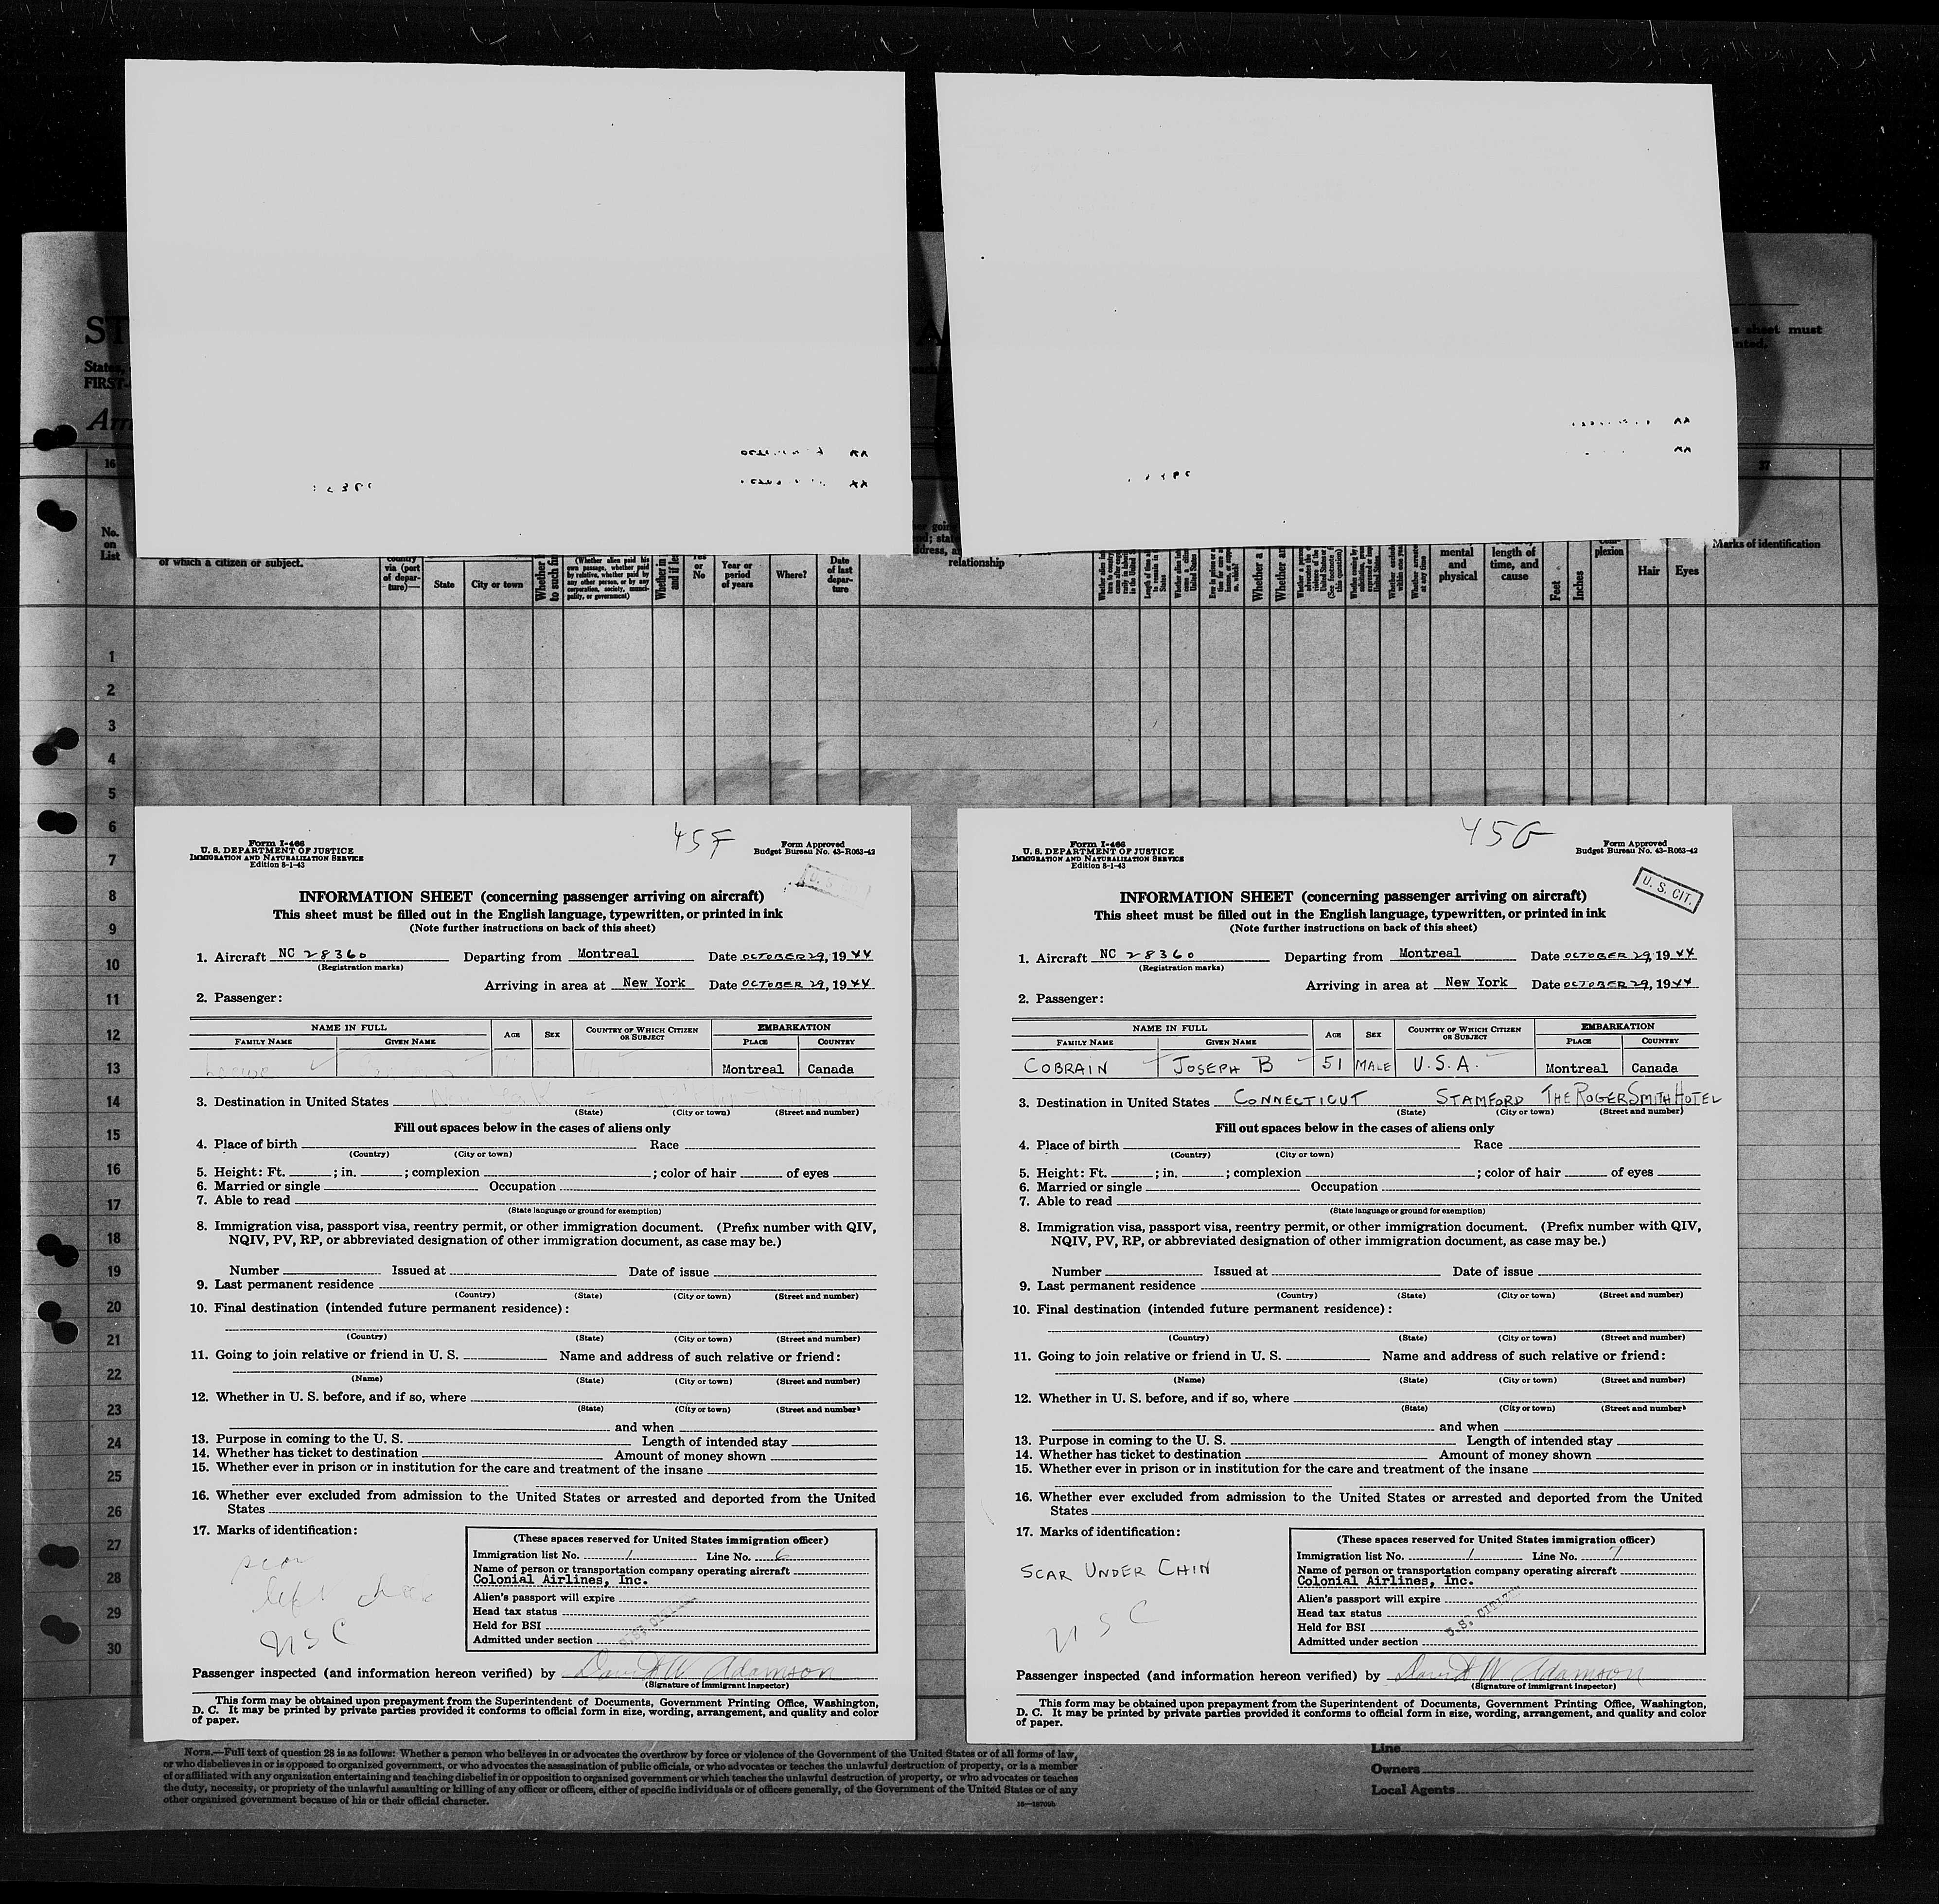 ST
States,
FIRST-
Arri
16
No.
on
List
of which a citizen or subject.
country
via (port
of depar-
ture)—
State
City or town
Whether
to such
(Whether alien paid his
own passage, whether paid
by relative, whether paid by
any other person, or by any
corporation, society, munici-
pality, or government)
Whether in
and if
Yes
or
No
Year or
period
of years
Where?
Date
of last
depar-
ture
relationship
Whether a
mental
and
physical
length of
time, and
cause
Feet
Inches
plexion
Hair
Eyes
37
Marks of identification
sheet must
1
2
3
4
5
6
7
8
9
10
11
12
13
14
15
16
17
18
19
20
21
22
23
24
25
26
27
28
29
30
45F
Form I-466
U. S. DEPARTMENT OF JUSTICE
IMMIGRATION AND NATURALIZATION SERVICE
Edition 8-1-43
Form Approved
Budget Bureau No. 43-R063-42
INFORMATION SHEET (concerning passenger arriving on aircraft)
This sheet must be filled out in the English language, typewritten, or printed in ink
(Note further instructions on back of this sheet)
1. Aircraft NC 28360 Departing from Montreal Date OCTOBER 29, 1944
(Registration marks)
Arriving in area at New York Date OCTOBER 29, 1944
2. Passenger:
NAME IN FULL AGE SEX COUNTRY OF WHICH CITIZEN OR SUBJECT EMBARKATION
FAMILY NAME GIVEN NAME PLACE COUNTRY
Montreal Canada
3. Destination in United States
(State) (City or town) (Street and number)
Fill out spaces below in the cases of aliens only
4. Place of birth Race
(Country) (City or town)
5. Height: Ft. ; in. ; complexion ; color of hair of eyes
6. Married or single Occupation
7. Able to read
(State language or ground for exemption)
8. Immigration visa, passport visa, reentry permit, or other immigration document. (Prefix number with QIV,
NQIV, PV, RP, or abbreviated designation of other immigration document, as case may be.)
Number Issued at Date of issue
9. Last permanent residence
(Country) (State) (City or town) (Street and number)
10. Final destination (intended future permanent residence):
(Country) (State) (City or town) (Street and number)
11. Going to join relative or friend in U. S. Name and address of such relative or friend:
(Name) (State) (City or town) (Street and number)
12. Whether in U. S. before, and if so, where
(State) (City or town) (Street and number)
and when
13. Purpose in coming to the U. S. Length of intended stay
14. Whether has ticket to destination Amount of money shown
15. Whether ever in prison or in institution for the care and treatment of the insane
16. Whether ever excluded from admission to the United States or arrested and deported from the United
States
17. Marks of identification:
scar
left cheek
USC
(These spaces reserved for United States immigration officer)
Immigration list No. 1 Line No. 6
Name of person or transportation company operating aircraft
Colonial Airlines, Inc.
Alien's passport will expire
Head tax status
Held for BSI
Admitted under section
U.S. CITIZEN
Passenger inspected (and information hereon verified) by David W Adamson
(Signature of immigrant inspector)
This form may be obtained upon prepayment from the Superintendent of Documents, Government Printing Office, Washington,
D. C. It may be printed by private parties provided it conforms to official form in size, wording, arrangement, and quality and color
of paper.
45G
Form I-466
U. S. DEPARTMENT OF JUSTICE
IMMIGRATION AND NATURALIZATION SERVICE
Edition 8-1-43
Form Approved
Budget Bureau No. 43-R063-42
U. S. CIT.
INFORMATION SHEET (concerning passenger arriving on aircraft)
This sheet must be filled out in the English language, typewritten, or printed in ink
(Note further instructions on back of this sheet)
1. Aircraft NC 28360 Departing from Montreal Date OCTOBER 29, 1944
(Registration marks)
Arriving in area at New York Date OCTOBER 29, 1944
2. Passenger:
NAME IN FULL AGE SEX COUNTRY OF WHICH CITIZEN OR SUBJECT EMBARKATION
FAMILY NAME GIVEN NAME PLACE COUNTRY
COBRAIN JOSEPH B 51 MALE U.S.A. Montreal Canada
3. Destination in United States CONNECTICUT STAMFORD THE ROGER SMITH HOTEL
(State) (City or town) (Street and number)
Fill out spaces below in the cases of aliens only
4. Place of birth Race
(Country) (City or town)
5. Height: Ft. ; in. ; complexion ; color of hair of eyes
6. Married or single Occupation
7. Able to read
(State language or ground for exemption)
8. Immigration visa, passport visa, reentry permit, or other immigration document. (Prefix number with QIV,
NQIV, PV, RP, or abbreviated designation of other immigration document, as case may be.)
Number Issued at Date of issue
9. Last permanent residence
(Country) (State) (City or town) (Street and number)
10. Final destination (intended future permanent residence):
(Country) (State) (City or town) (Street and number)
11. Going to join relative or friend in U. S. Name and address of such relative or friend:
(Name) (State) (City or town) (Street and number)
12. Whether in U. S. before, and if so, where
(State) (City or town) (Street and number)
and when
13. Purpose in coming to the U. S. Length of intended stay
14. Whether has ticket to destination Amount of money shown
15. Whether ever in prison or in institution for the care and treatment of the insane
16. Whether ever excluded from admission to the United States or arrested and deported from the United
States
17. Marks of identification:
SCAR UNDER CHIN
USC
(These spaces reserved for United States immigration officer)
Immigration list No. 1 Line No. 7
Name of person or transportation company operating aircraft
Colonial Airlines, Inc.
Alien's passport will expire
Head tax status
Held for BSI
Admitted under section
U.S. CITIZEN
Passenger inspected (and information hereon verified) by David W Adamson
(Signature of immigrant inspector)
This form may be obtained upon prepayment from the Superintendent of Documents, Government Printing Office, Washington,
D. C. It may be printed by private parties provided it conforms to official form in size, wording, arrangement, and quality and color
of paper.
NOTE.—Full text of question 28 is as follows: Whether a person who believes in or advocates the overthrow by force or violence of the Government of the United States or of all forms of law,
or who disbelieves in or is opposed to organized government, or who advocates the assassination of public officials, or who advocates or teaches the unlawful destruction of property, or is a member
of or affiliated with any organization entertaining and teaching disbelief in or opposition to organized government or which teaches the unlawful destruction of property, or who advocates or teaches
the duty, necessity, or propriety of the unlawful assaulting or killing of any officer or officers, either of specific individuals or of officers generally, of the Government of the United States or of any
other organized government because of his or their official character.
Line
Owners
Local Agents